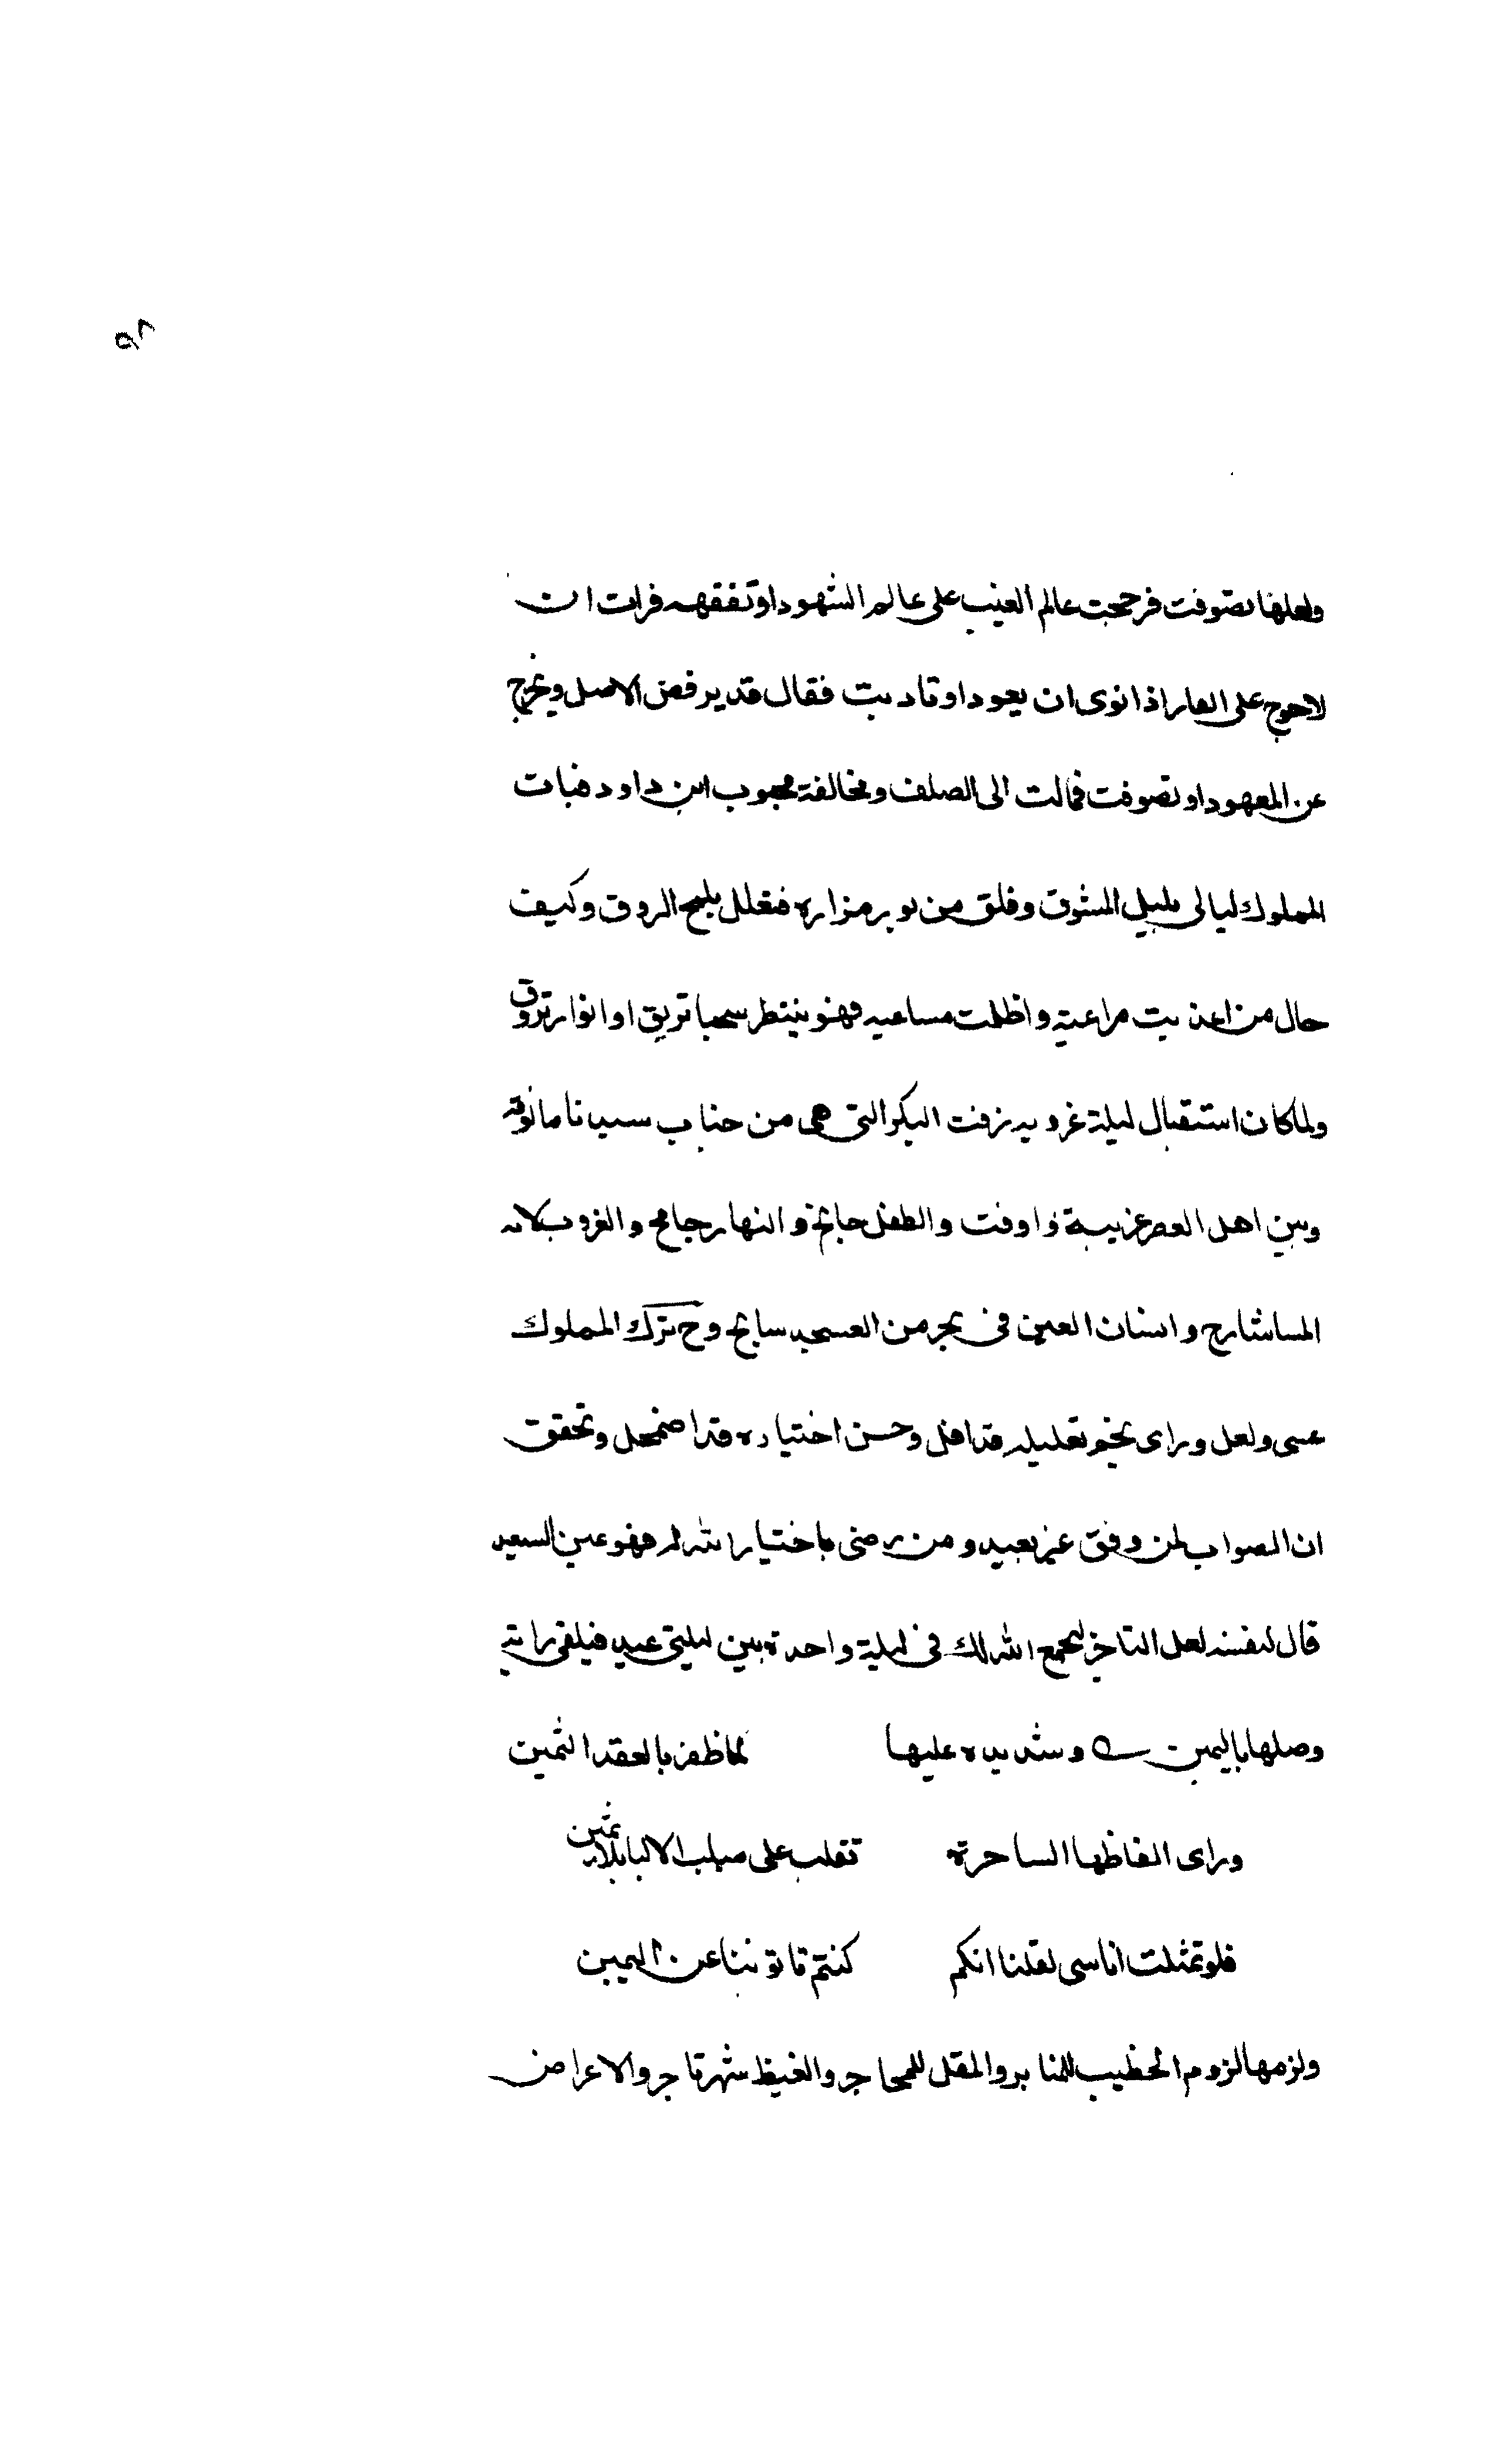 ٥٨
ولعلها تصوفت فرجحت عالم الغيب على عالم الشهود او تفقهه فرات ان
لاحوج على العار اذا نوى ان يعود او تادبت فقال قد يرفض الاصل ويخرج
عن المعهود او تصوفت فمالت الى الصلف ومخالفة محبوب ابن داود فبات
المملوك ليالى بليل المشوق وقلق من مزاره فتعلل بلمح الروق وكيف
حال من اعذبت مراعيه واظلمت مساعيه فهو ينتظر سحبا تريق او انوار تروق
ولما كان استقبال ليلة غروبه زفت البكر التى هى من جناب سيدنا مانوقة
وبين اهل العصر غريبة فاوفت والطفل جانح والنهار جامح والغروب لانه
المسا شارح وانسان العين فى بحر من العسجد سابح وح ترك المملوك
عسى ولعل وراى نجم تعليله قد افل وحسن اختياره قد اضمحل وتحقق
ان الصواب لمن وفق غير بعيد ومن رضى باختيار الله له فهو عين السعيد
قال لنفسه لعل التاخير ليجمع الله لك فى ليلة واحدة بين ليلتى عيد فيلقى راية
وصلها باليمين وشد يده عليها لما ظفر بالعقد الثمين
وراى الفاظها الساحرة تقلب على الالباب بلا ثمين
فلو تمثلت اناسى لقلنا انكم كنتم تاتوننا عن اليمين
ولزمها لزوم الخطيب للمنابر والمقل للمحاجر والغيظ شهر ناجر والاعراض